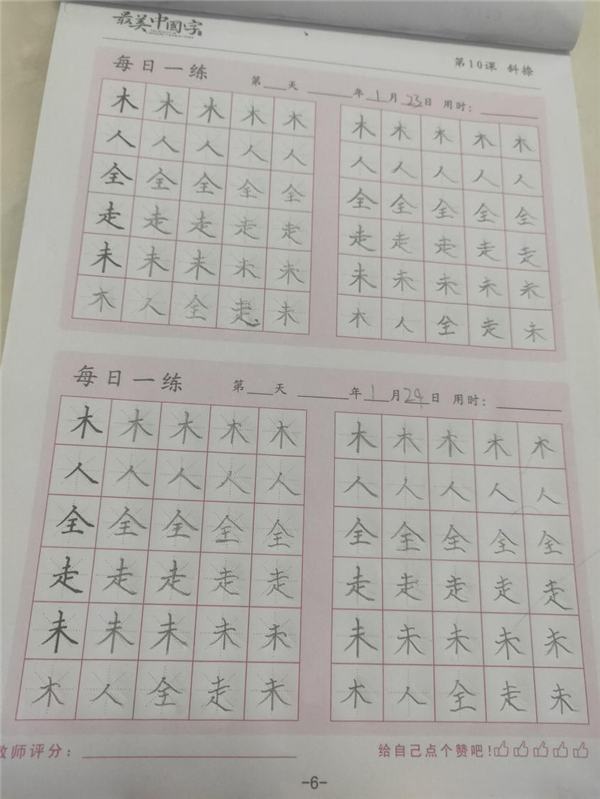 最美中国字
第10课 斜捺
每日一练 第___天 ______年 1 月 23 日 用时：______
木 木 木 木 木 木 木 木 木 木
人 人 人 人 人 人 人 人 人 人
全 全 全 全 全 全 全 全 全 全
走 走 走 走 走 走 走 走 走 走
未 未 未 未 未 未 未 未 未 未
木 人 全 走 未 木 人 全 走 未
每日一练 第___天 ______年 1 月 24 日 用时：______
木 木 木 木 木 木 木 木 木 木
人 人 人 人 人 人 人 人 人 人
全 全 全 全 全 全 全 全 全 全
走 走 走 走 走 走 走 走 走 走
未 未 未 未 未 未 未 未 未 未
木 人 全 走 未 木 人 全 走 未
教师评分：______ 给自己点个赞吧！
-6-